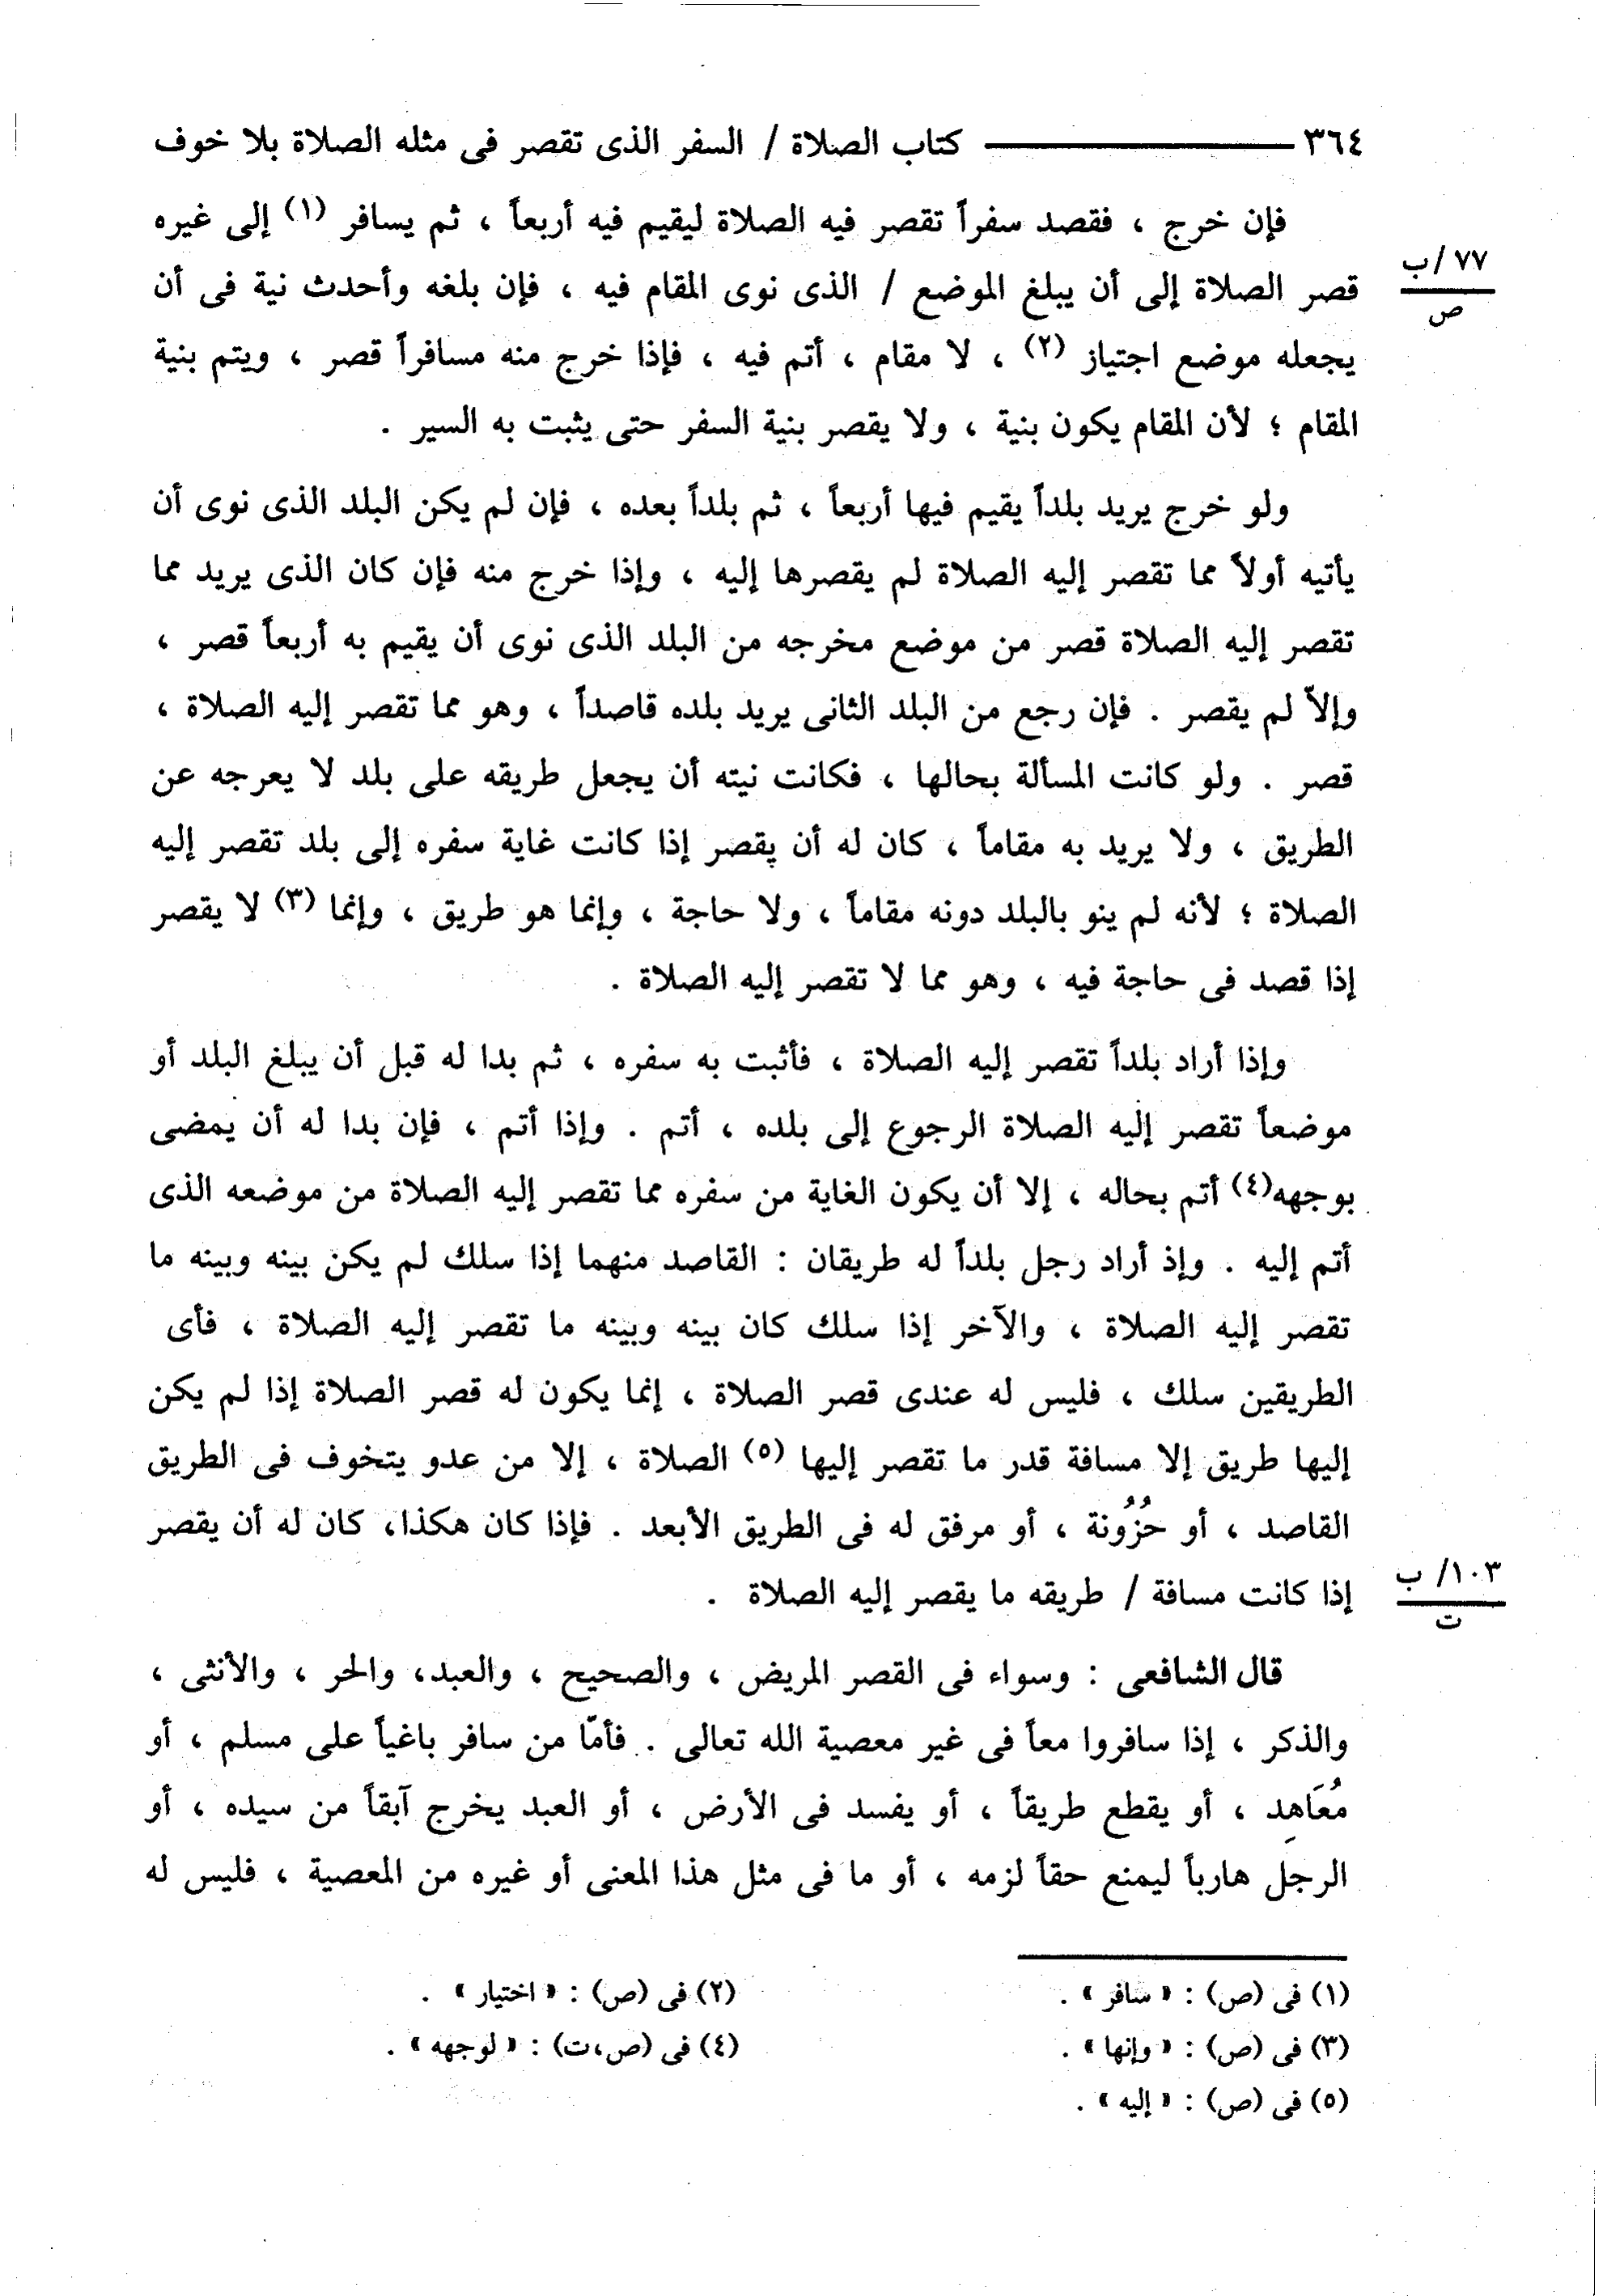 ٣٦٤ ــــــــــــــــ كتاب الصلاة / السفر الذى تقصر فى مثله الصلاة بلا خوف
فإن خرج ، فقصد سفراً تقصر فيه الصلاة ليقيم فيه أربعاً ، ثم يسافر (١) إلى غيره
٧٧ /ب
ص
قصر الصلاة إلى أن يبلغ الموضع / الذى نوى المقام فيه ، فإن بلغه وأحدث نية فى أن
يجعله موضع اجتياز (٢) ، لا مقام ، أتم فيه ، فإذا خرج منه مسافراً قصر ، ويتم بنية
المقام ؛ لأن المقام يكون بنية ، ولا يقصر بنية السفر حتى يثبت به السير .
ولو خرج يريد بلداً يقيم فيها أربعاً ، ثم بلداً بعده ، فإن لم يكن البلد الذى نوى أن
يأتيه أولاً مما تقصر إليه الصلاة لم يقصرها إليه ، وإذا خرج منه فإن كان الذى يريد مما
تقصر إليه الصلاة قصر من موضع مخرجه من البلد الذى نوى أن يقيم به أربعاً قصر ،
وإلاّ لم يقصر . فإن رجع من البلد الثانى يريد بلده قاصداً ، وهو مما تقصر إليه الصلاة ،
قصر . ولو كانت المسألة بحالها ، فكانت نيته أن يجعل طريقه على بلد لا يعرجه عن
الطريق ، ولا يريد به مقاماً ، كان له أن يقصر إذا كانت غاية سفره إلى بلد تقصر إليه
الصلاة ؛ لأنه لم ينو بالبلد دونه مقاماً ، ولا حاجة ، وإنما هو طريق ، وإنما (٣) لا يقصر
إذا قصد فى حاجة فيه ، وهو مما لا تقصر إليه الصلاة .
وإذا أراد بلداً تقصر إليه الصلاة ، فأثبت به سفره ، ثم بدا له قبل أن يبلغ البلد أو
موضعاً تقصر إليه الصلاة الرجوع إلى بلده ، أتم . وإذا أتم ، فإن بدا له أن يمضى
بوجهه(٤) أتم بحاله ، إلا أن يكون الغاية من سفره مما تقصر إليه الصلاة من موضعه الذى
أتم إليه . وإذ أراد رجل بلداً له طريقان : القاصد منهما إذا سلك لم يكن بينه وبينه ما
تقصر إليه الصلاة ، والآخر إذا سلك كان بينه وبينه ما تقصر إليه الصلاة ، فأى
الطريقين سلك ، فليس له عندى قصر الصلاة ، إنما يكون له قصر الصلاة إذا لم يكن
إليها طريق إلا مسافة قدر ما تقصر إليها (٥) الصلاة ، إلا من عدو يتخوف فى الطريق
القاصد ، أو حُزُونة ، أو مرفق له فى الطريق الأبعد . فإذا كان هكذا، كان له أن يقصر
١٠٣/ ب
ت
إذا كانت مسافة / طريقه ما يقصر إليه الصلاة .
قال الشافعى : وسواء فى القصر المريض ، والصحيح ، والعبد، والحر ، والأنثى ،
والذكر ، إذا سافروا معاً فى غير معصية الله تعالى . فأمّا من سافر باغياً على مسلم ، أو
مُعَاهِد ، أو يقطع طريقاً ، أو يفسد فى الأرض ، أو العبد يخرج آبقاً من سيده ، أو
الرجل هارباً ليمنع حقاً لزمه ، أو ما فى مثل هذا المعنى أو غيره من المعصية ، فليس له
(١) فى (ص) : « سافر » .
(٢) فى (ص) : « اختيار » .
(٣) فى (ص) : « وإنها » .
(٤) فى (ص،ت) : « لوجهه » .
(٥) فى (ص) : « إليه » .